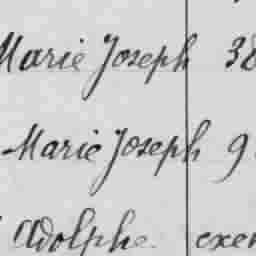 Marie Joseph 38
Marie Joseph 9
Adolphe exem